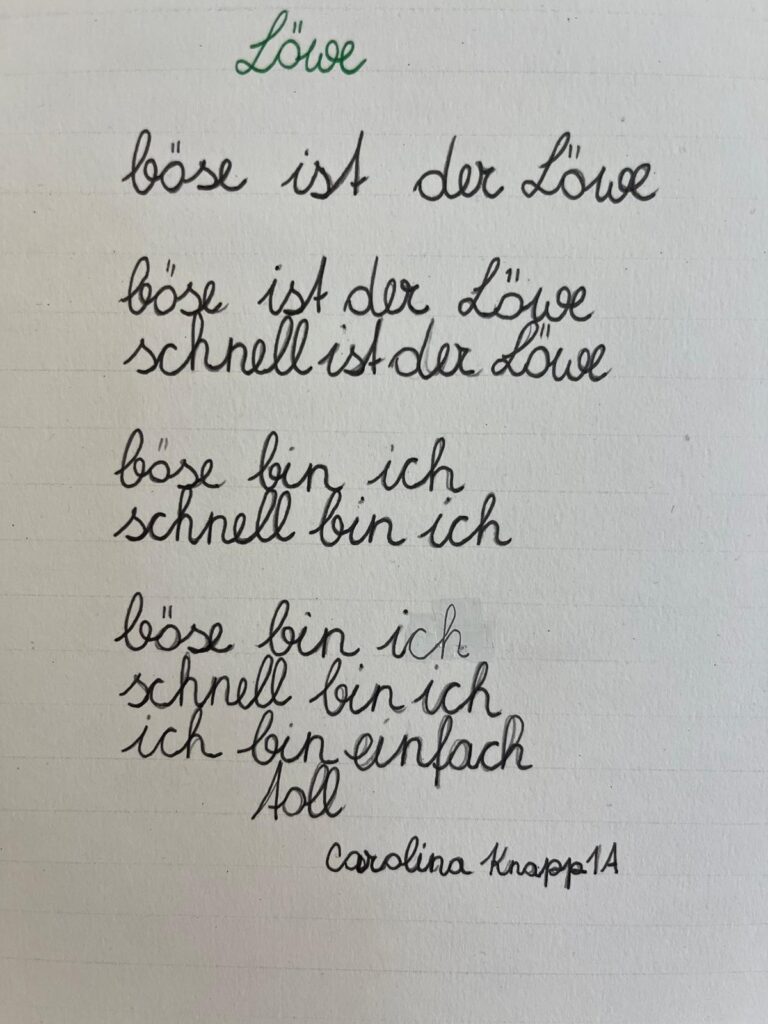 Löwe
böse ist der Löwe
böse ist der Löwe
schnell ist der Löwe
böse bin ich
schnell bin ich
böse bin ich
schnell bin ich
ich bin einfach
toll
Carolina Knapp 1A